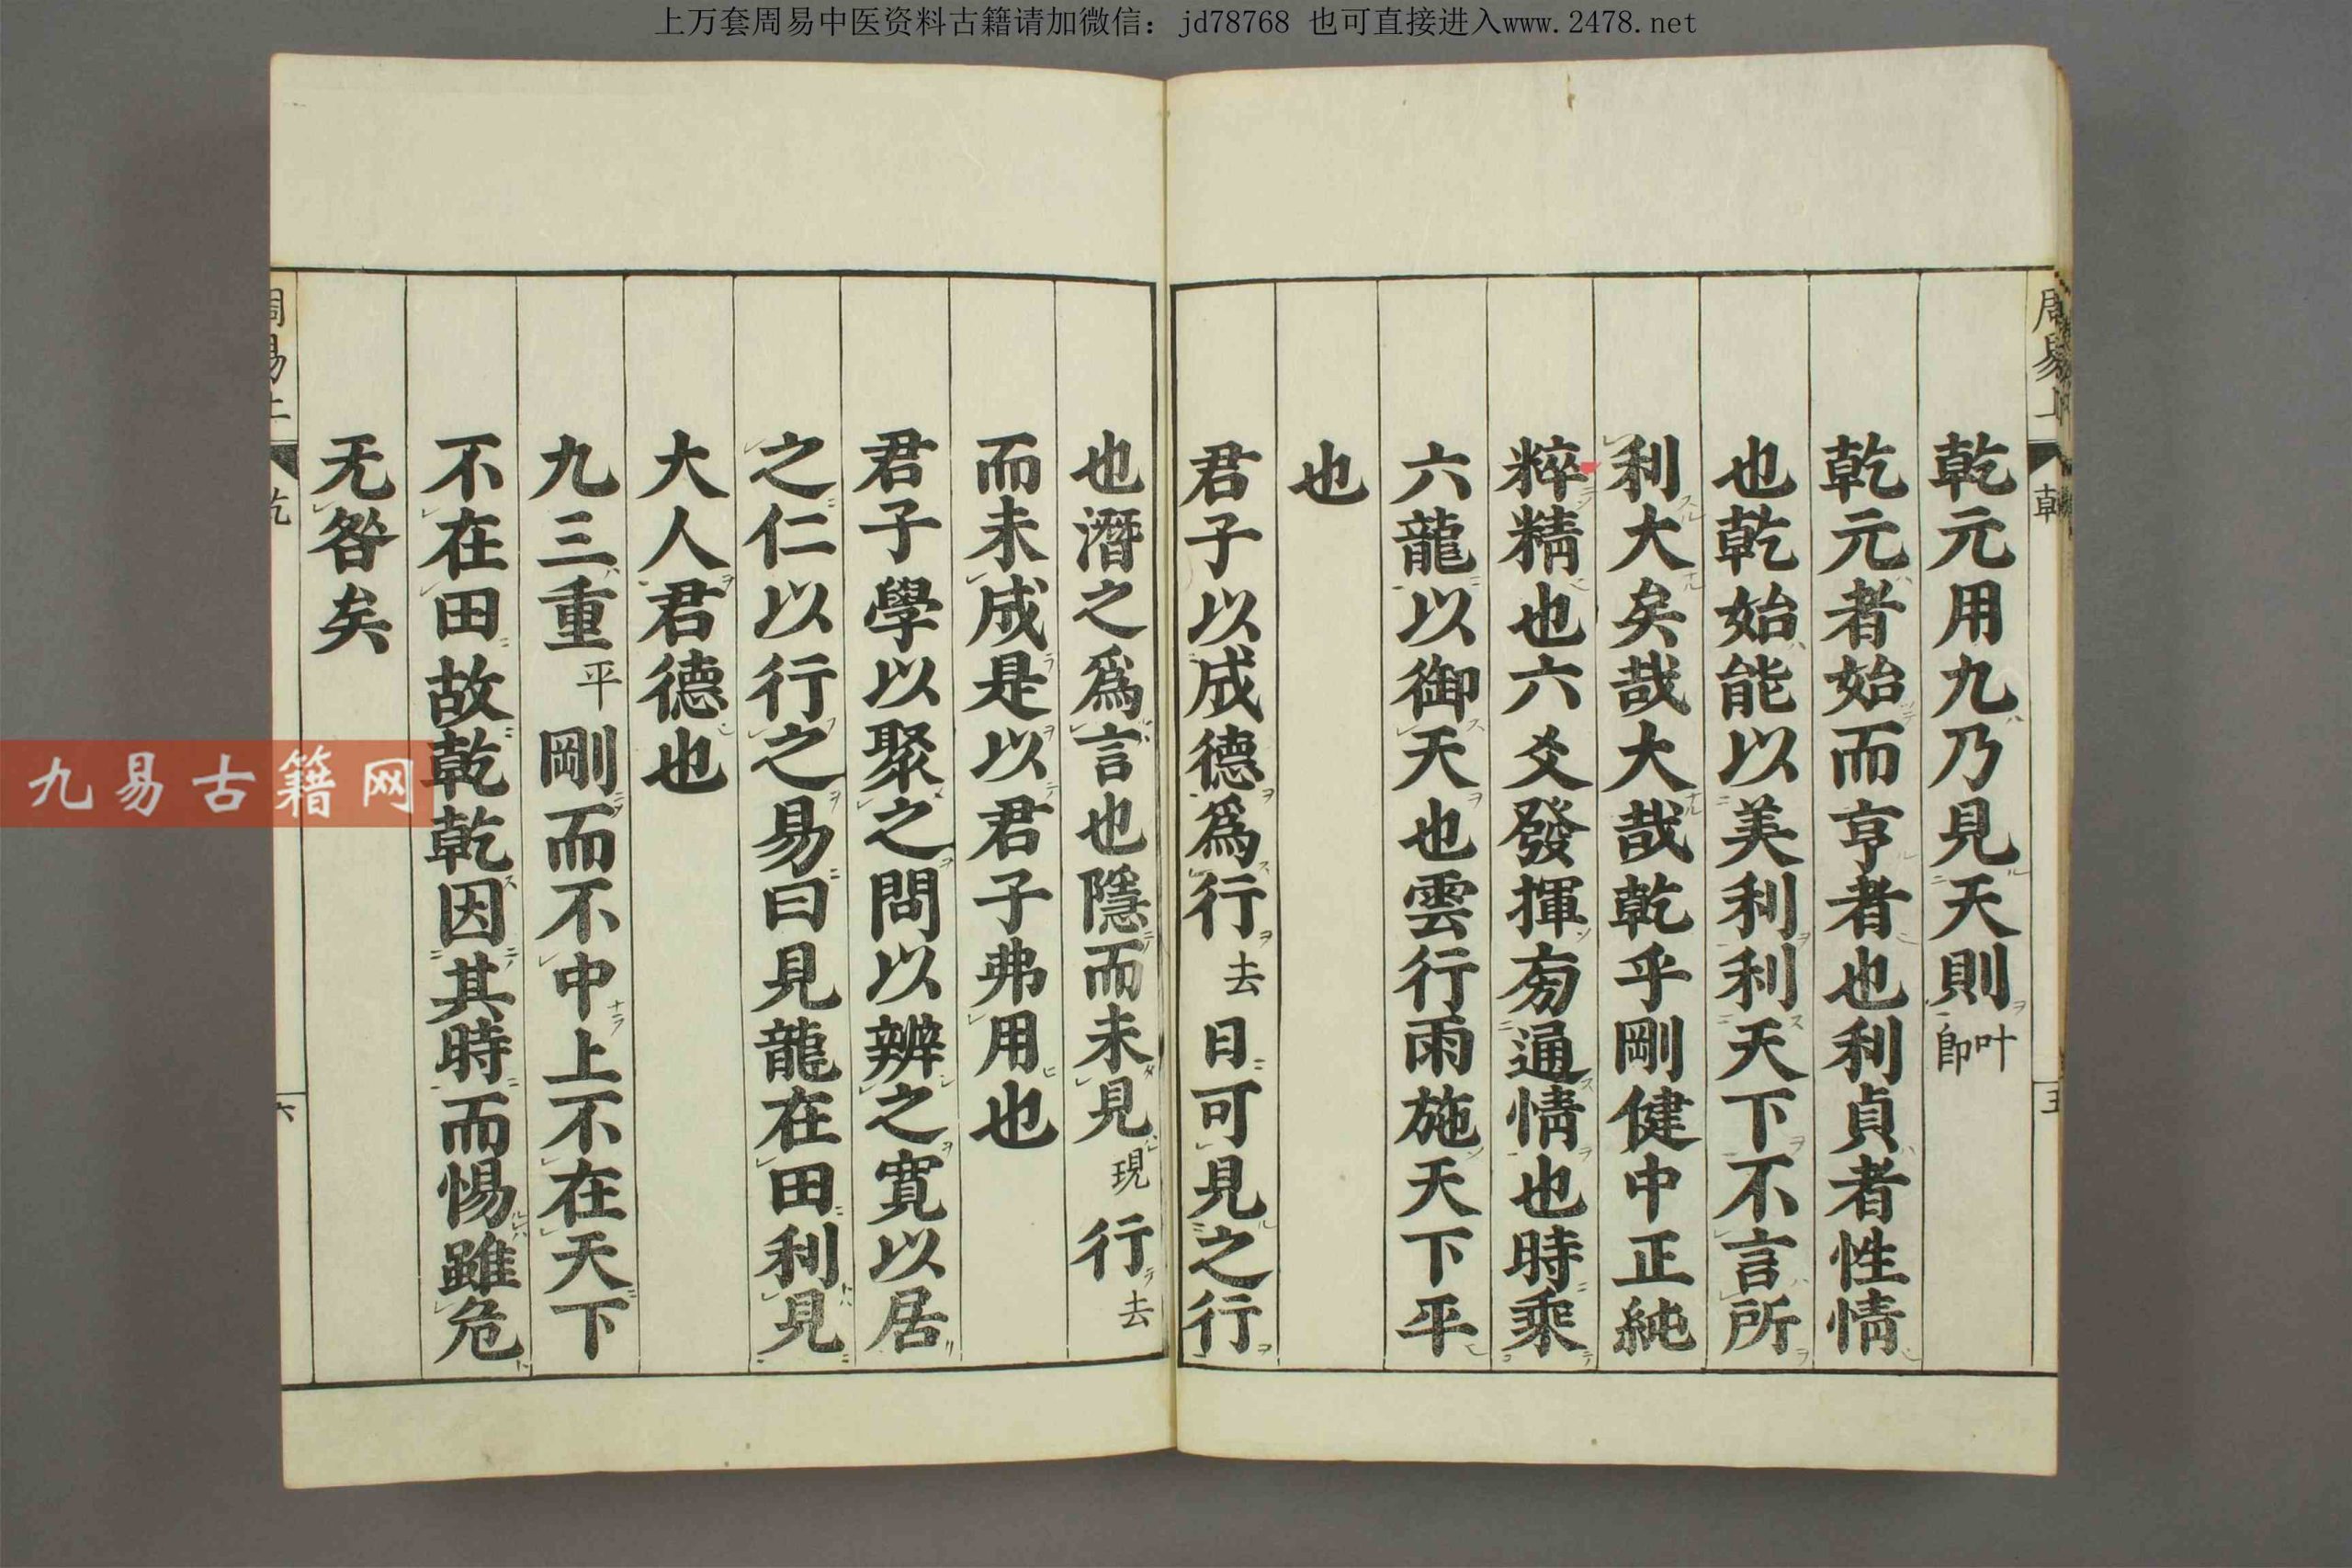 上万套周易中医资料古籍请加微信：jd78768 也可直接进入www.2478.net
周易上
乾
五
乾元用九乃見天則叶即
乾元者始而亨者也利貞者性情
也乾始能以美利利天下不言所
利大矣哉大哉乾乎剛健中正純
粹精也六爻發揮旁通情也時乘
六龍以御天也雲行雨施天下平
也
君子以成德爲行去日可見之行
也潛之爲言也隱而未見現行去
而未成是以君子弗用也
君子學以聚之問以辨之寬以居
之仁以行之易曰見龍在田利見
大人君德也
九三重平剛而不中上不在天下
不在田故乾乾因其時而惕雖危
无咎矣
周易上
乾
六
九易古籍网